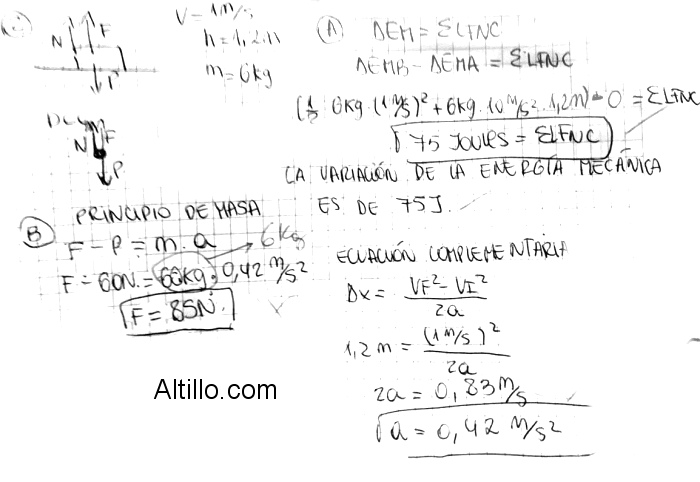 V = 1m/s
h = 1,2m
m = 6kg
N F
P
N F
P
A ΔEM = ΣLFNC
ΔEMB - ΔEMA = ΣLFNC
(½ 6kg (1 m/s)² + 6kg 10 m/s² 1,2m) - 0 = ΣLFNC
75 JOULES = ΣLFNC
LA VARIACIÓN DE LA ENERGÍA MECÁNICA
ES DE 75J.
B PRINCIPIO DE MASA
F - P = m.a
6kg
F - 60N = 60kg . 0,42 m/s²
F = 85N
ECUACIÓN COMPLEMENTARIA
Δx = VF² - VI² / 2a
1,2m = (1 m/s)² / 2a
2a = 0,83m/s
a = 0,42 m/s²
Altillo.com